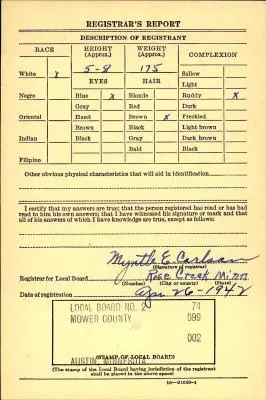 REGISTRAR'S REPORT
DESCRIPTION OF REGISTRANT
RACE HEIGHT (Approx.) WEIGHT (Approx.) COMPLEXION
White x 5-8 175 Sallow
EYES HAIR Light
Negro Blue x Blonde Ruddy x
Gray Red Dark
Oriental Hazel Brown x Freckled
Brown Black Light brown
Indian Black Gray Dark brown
Bald Black
Filipino
Other obvious physical characteristics that will aid in identification
I certify that my answers are true; that the person registered has read or has had
read to him his own answers; that I have witnessed his signature or mark and that
all of his answers of which I have knowledge are true, except as follows:
Myrtle E. Carlson
(Signature of registrar)
Registrar for Local Board Rose Creek Minn
(Number) (City or county) (State)
Date of registration Apr 26-1942
LOCAL BOARD NO. 2 74
MOWER COUNTY 099
002
AUSTIN, MINNESOTA
(STAMP OF LOCAL BOARD)
(The stamp of the Local Board having jurisdiction of the registrant
shall be placed in the above space)
16—21630-1